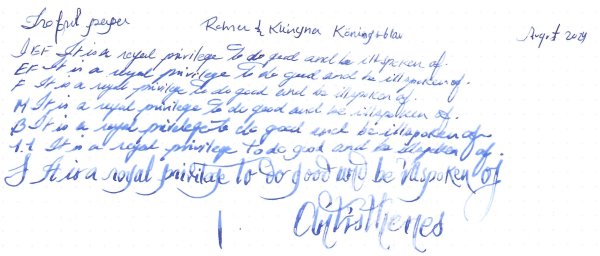 paper Rohrer & Klingner Königsblau August 2024
IEF It is a royal privilege to do good and be ill spoken of.
EF It is a royal privilege to do good and be ill spoken of.
F It is a royal privilege to do good and be ill spoken of.
M It is a royal privilege to do good and be ill spoken of.
B It is a royal privilege to do good and be ill spoken of
1.1 It is a royal privilege to do good and be ill spoken of.
It is a royal privilege to do good and be ill spoken of
Antisthenes